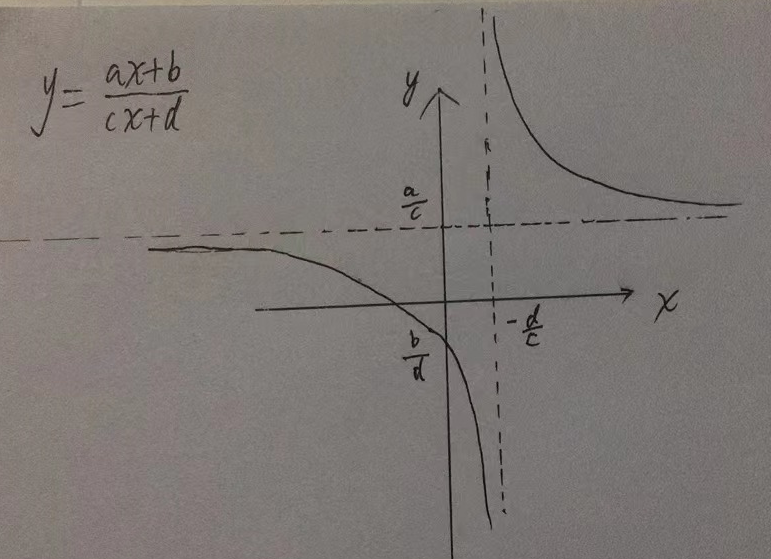 y = \frac{ax+b}{cx+d}
y
\frac{a}{c}
x
-\frac{d}{c}
\frac{b}{d}